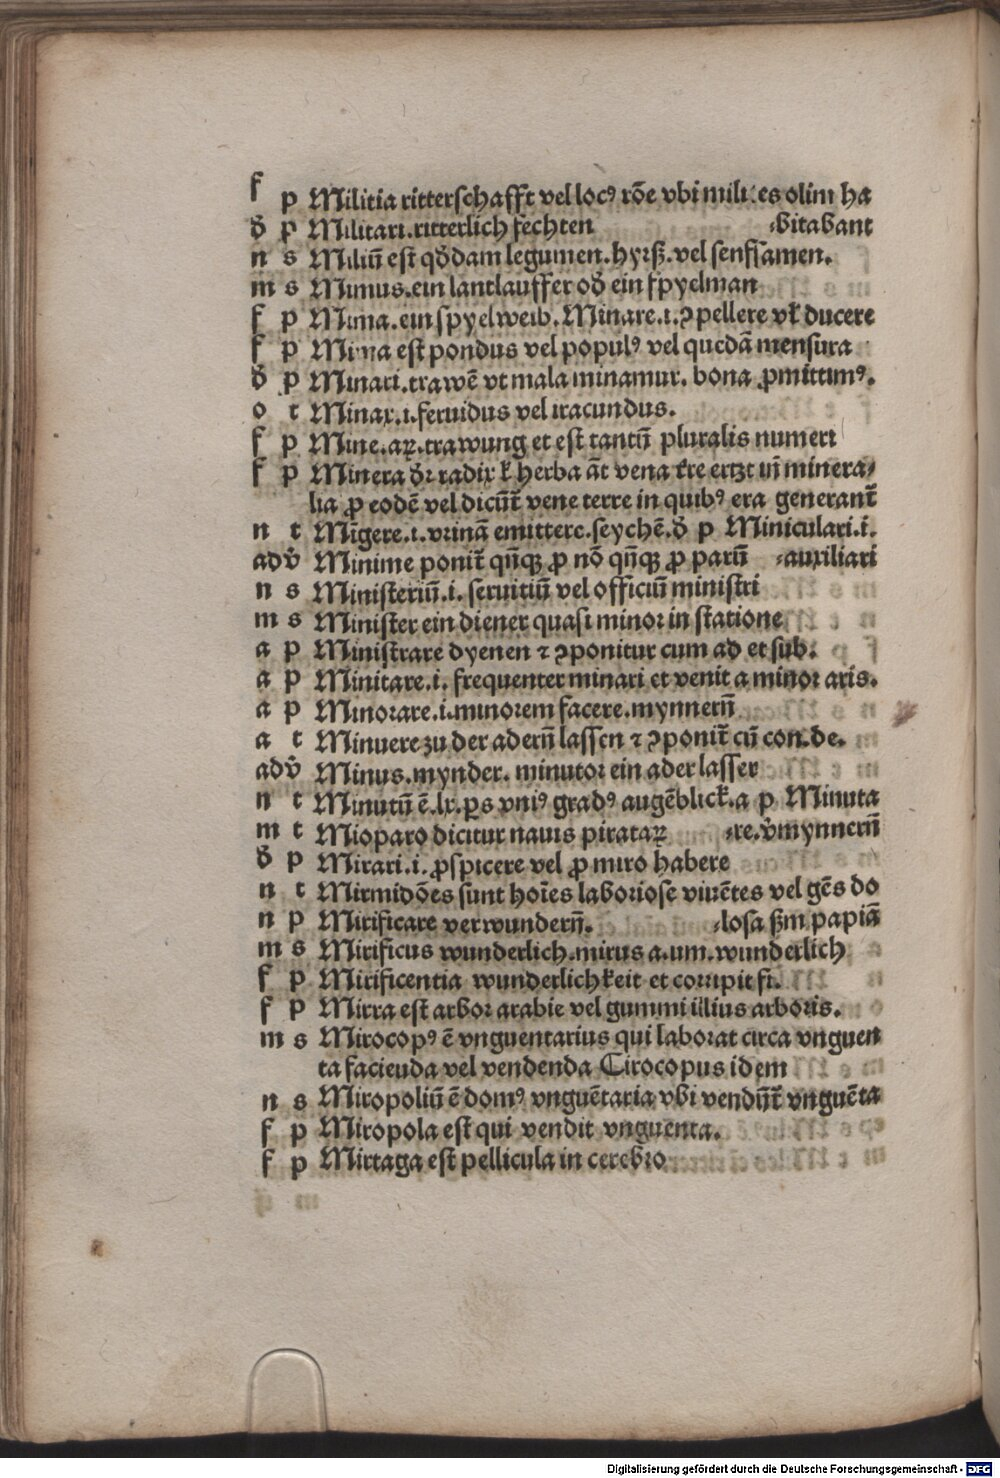 f p Militia ritterschafft vel locꝰ rōe vbi milites olim ha
đ p Militari.ritterlich fechten ⸗bitabant
n s Miliū est qđdam legumen.hyrß.vel senfsamen.
m s Mimus.ein lantlauffer ođ ein spyelman
f p Mima.ein spyelweib.Minare.i.ꝯpellere vł ducere
f p Mina est pondus vel populꝰ vel quedā mensura
đ p Minari.trawē vt mala minamur. bona ꝓmittimꝰ.
o t Minax.i.feruidus vel iracundus.
f p Mine.aꝝ.trawung et est tantū pluralis numeri
f p Minera đr radix ł herba āt vena tre ertzt vn̄ minera⸗
lia ꝓ eodē vel dicūt̄ vene terre in quibꝰ era generant̄
n t Mīgere.i.vrinā emittere.seychē.đ p Miniculari.i.
adv̄ Minime ponit̄ qn̄qꝫ ꝓ nō qn̄qꝫ ꝓ parū ⸗auxiliari
n s Ministeriū.i. seruitiū vel officiū ministri
m s Minister ein diener quasi minor in statione
a p Ministrare dyenen ⁊ ꝯponitur cum ad et sub.
a p Minitare.i. frequenter minari et venit a minor aris.
a p Minorare.i.minorem facere.mynnern̄
a t Minuere zu der adern̄ lassen ⁊ ꝯponit̄ cū con.de.
adv̄ Minus.mynder. minutor ein ader lasser
n t Minutū ē.lx.ꝑs vniꝰ gradꝰ augēblick.a p Minuta
m t Mioparo dicitur nauis pirataꝝ ⸗re.v̄mynnern̄
đ p Mirari.i.ꝓspicere vel ꝓ miro habere
n t Mirmidōes sunt hoīes laboriose viuētes vel gēs do
n p Mirificare verwundern̄. ⸗losa ẜm papiā
m s Mirificus wunderlich.mirus a.um.wunderlich
f p Mirificentia wunderlichkeit et corripit fi.
f p Mirra est arbor arabie vel gummi illius arboris.
m s Mirocopꝰ ē vnguentarius qui laborat circa vnguen
ta facienda vel vendenda Cirocopus idem
n s Miropoliū ē domꝰ vnguētaria vbi vendūt̄ vnguēta
f p Miropola est qui vendit vnguenta.
f p Mirtaga est pellicula in cerebro
Digitalisierung gefördert durch die Deutsche Forschungsgemeinschaft - DFG